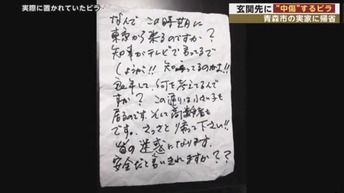 実際に置かれていたビラ
玄関先に"中傷"するビラ
青森市の実家に帰省
なんで この時期に
東京から来るのですか?
知事がテレビで言ってるで
しょうが!! 知ってるのかよ!!
良い年して、何を考えてるんで
すか? この通りは小さい子も
居るのです。そして高齢者も
です。さっさと帰って下さい!!
皆の迷惑になります。
安全だと言いきれますか??